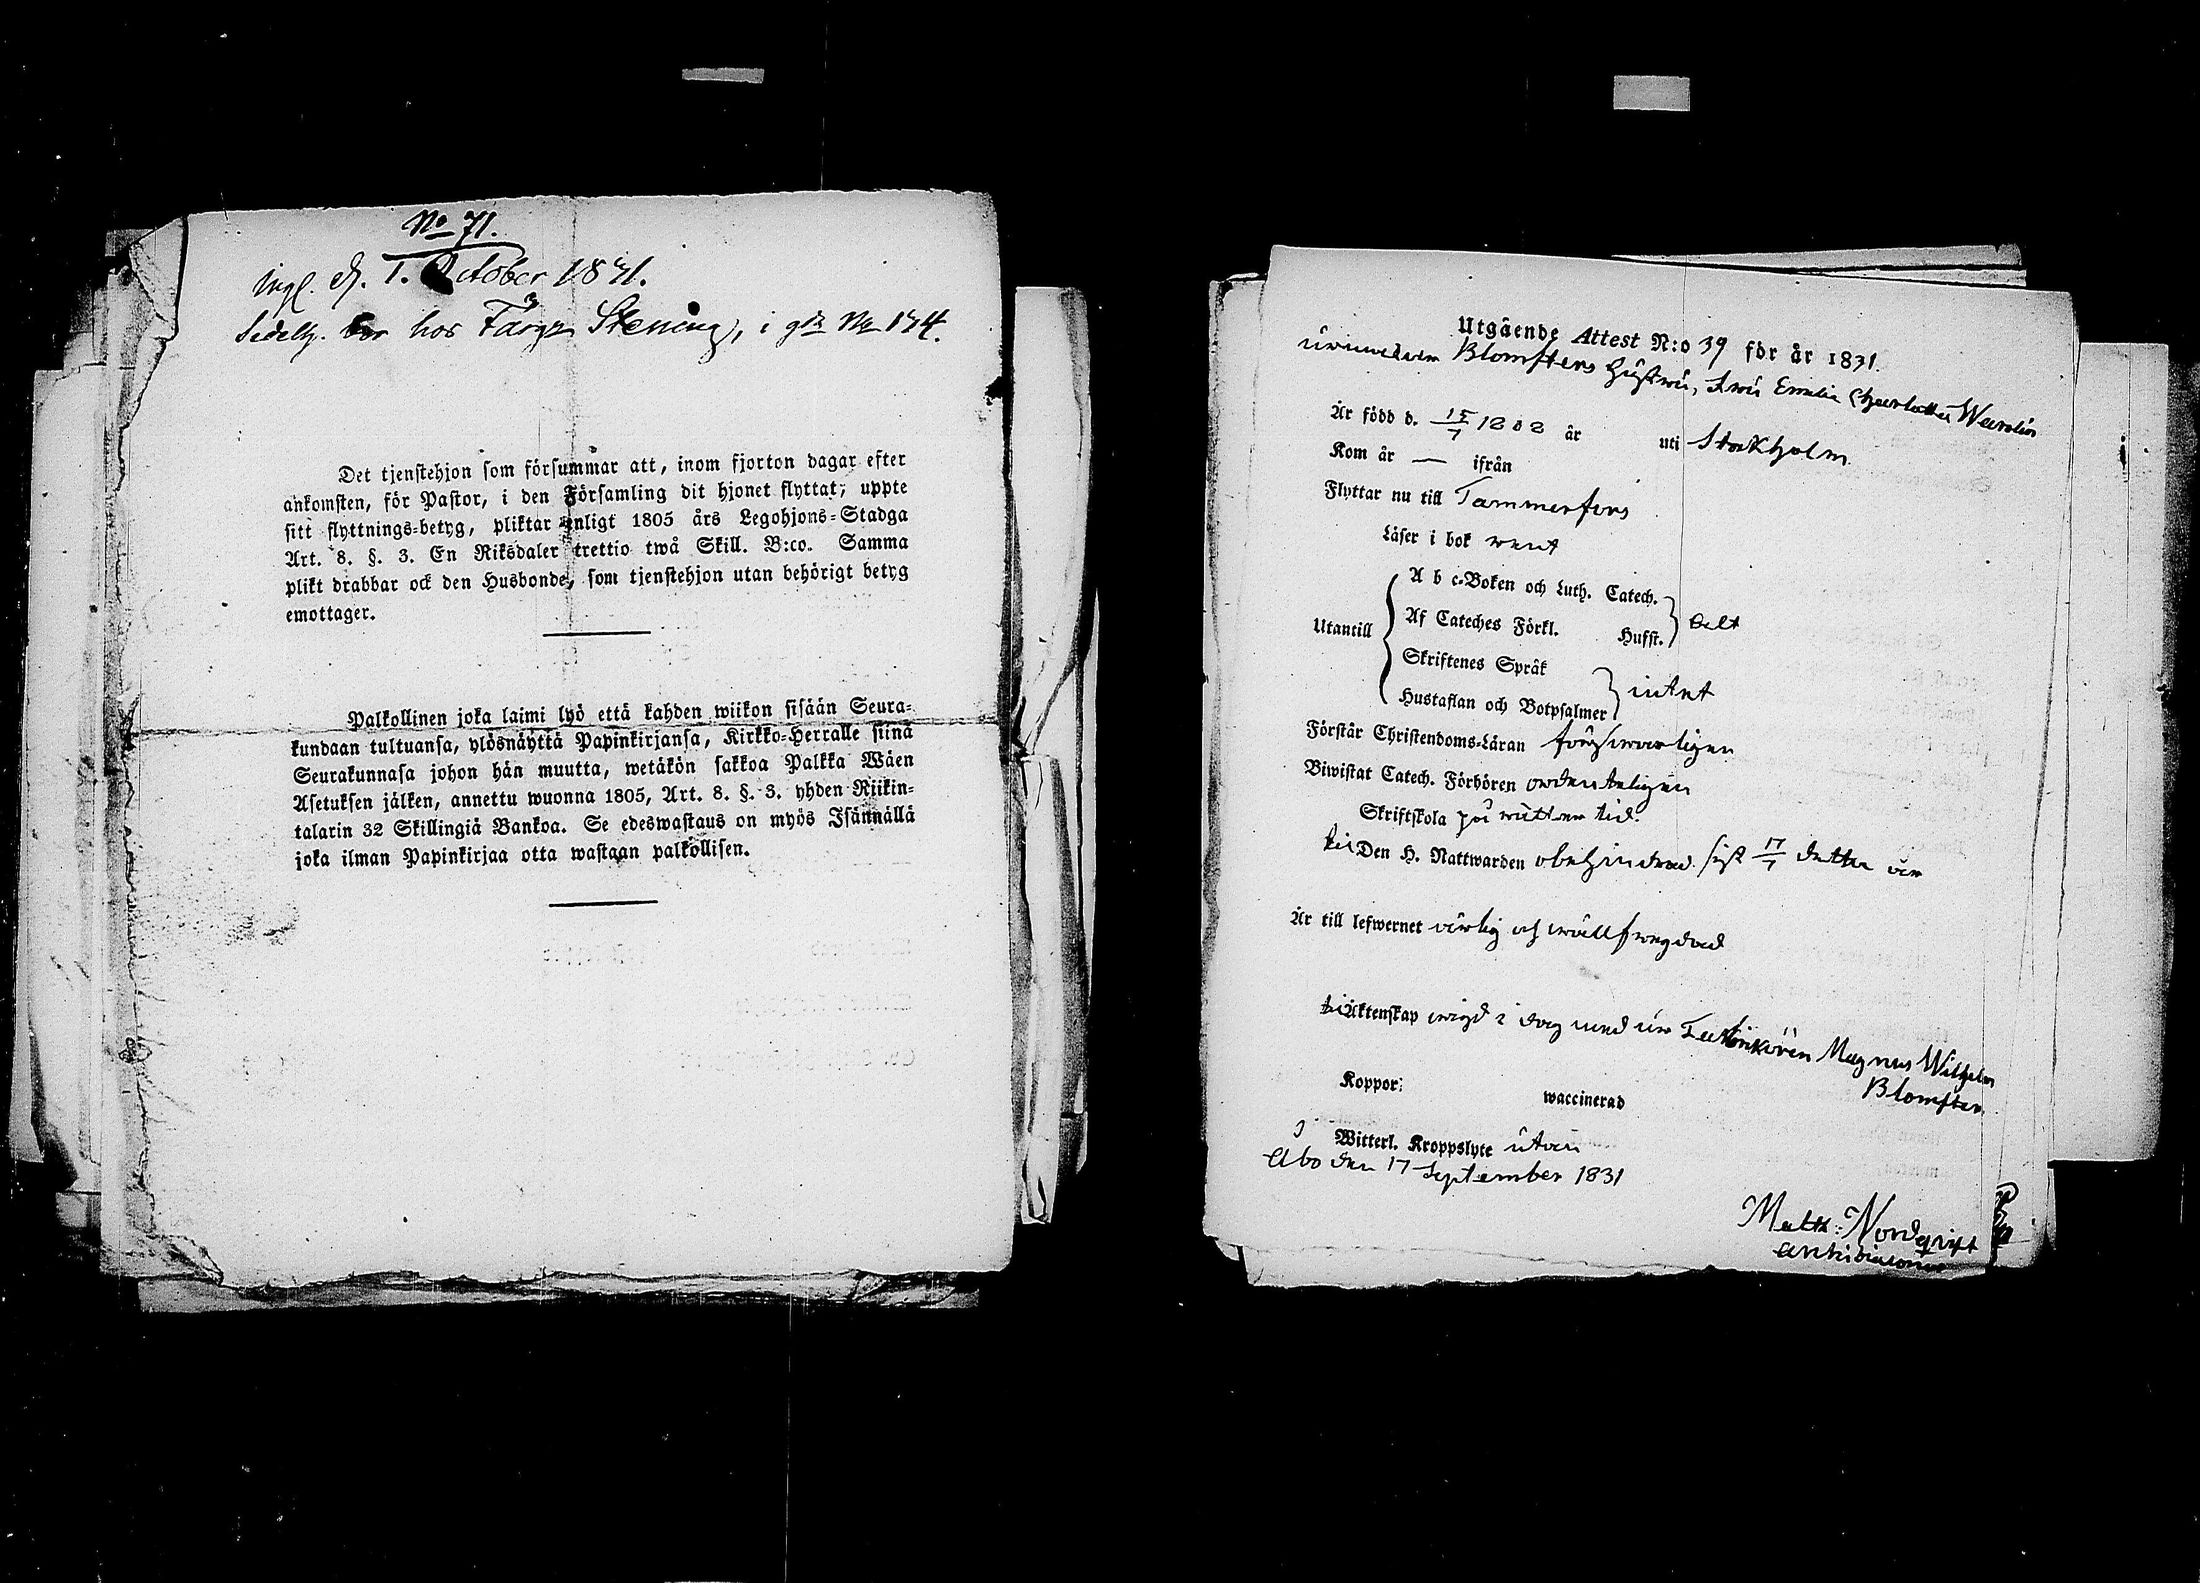 No 71.
ingl. d. 1. October 1831.
hos Färg. Stening, i gdn No 174.
Det tjenstehjon som försummar att, inom fjorton dagar efter
ankomsten, för Pastor, i den Församling dit hjonet flyttat, uppte
sitt flyttnings-betyg, pliktar enligt 1805 års Legohjons-Stadga
Art. 8. §. 3. En Riksdaler trettio twå Skill. B:co. Samma
plikt drabbar ock den Husbonde, som tjenstehjon utan behörigt betyg
emottager.
Palkollinen joka laimi lyö että kahden wiikon sisään Seura-
kundaan tultuansa, ylösnäyttä Papinkirjansa, Kirkko-Herralle siinä
Seurakunnasa johon hän muutta, wetäkön sakkoa Palkka Wäen
Asetuksen jälken, annettu wuonna 1805, Art. 8. §. 3. yhden Riikin-
talarin 32 Skillingiä Bankoa. Se edeswastaus on myös Isännällä
joka ilman Papinkirjaa otta wastaan palkollisen.
Utgående Attest N:o 39 för år 1831.
Blomsters Hustru, Fru Emelie Charlotta
Är född d. 15/7 1802 år uti Stockholm
Kom år — ifrån
Flyttar nu till Tammerfors
Läser i bok rent
A b c-Boken och Luth. Catech.
Utantill Af Cateches Förkl. Hufst.
Skriftenes Språk
Hustaflan och Botpsalmer intet
Förstår Christendoms-Läran försvarligen
Biwistat Catech. Förhören ordenteligen
Skriftskola på rätten tid.
Den H. Nattwarden obehindrad sist 17/7 detta år
Är till lefwernet ärlig och wälfrejdad
Äktenskap wigd i dag med Magnus Wilhelm
Blomster.
Koppor: waccinerad
Witterl. Kroppslyte utan
Åbo den 17 September 1831
Math: Nordqvist
Archidiaconus